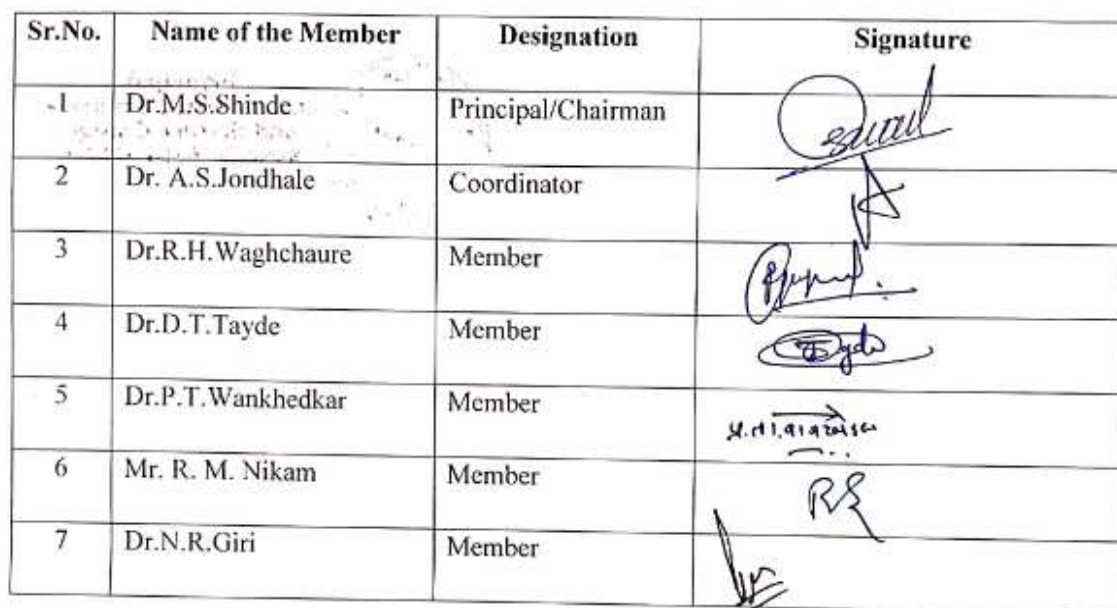 Sr.No. Name of the Member Designation Signature
1 Dr.M.S.Shinde Principal/Chairman
2 Dr. A.S.Jondhale Coordinator
3 Dr.R.H.Waghchaure Member
4 Dr.D.T.Tayde Member
5 Dr.P.T.Wankhedkar Member
6 Mr. R. M. Nikam Member
7 Dr.N.R.Giri Member